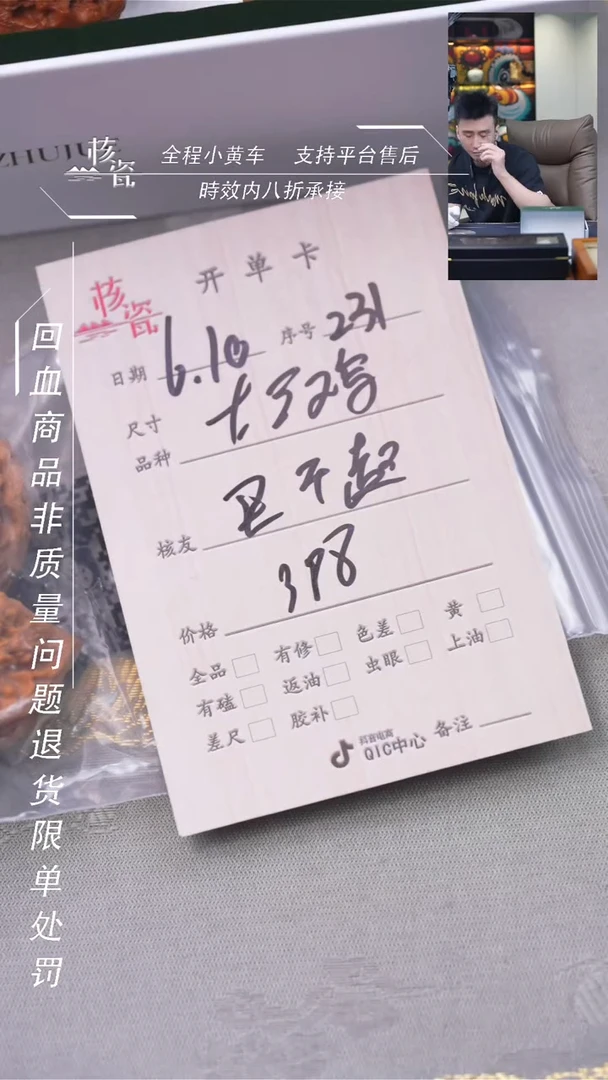 ZHUJUE
核瓷
全程小黄车 支持平台售后
時效内八折承接
回血商品非质量问题退货限单处罚
核瓷
开单卡
日期 6.10 序号 231
尺寸
品种
核友 买不起
价格 398
全品 有修 色差 黄
有磕 返油 虫眼 上油
差尺 胶补
抖音电商
QIC中心 备注